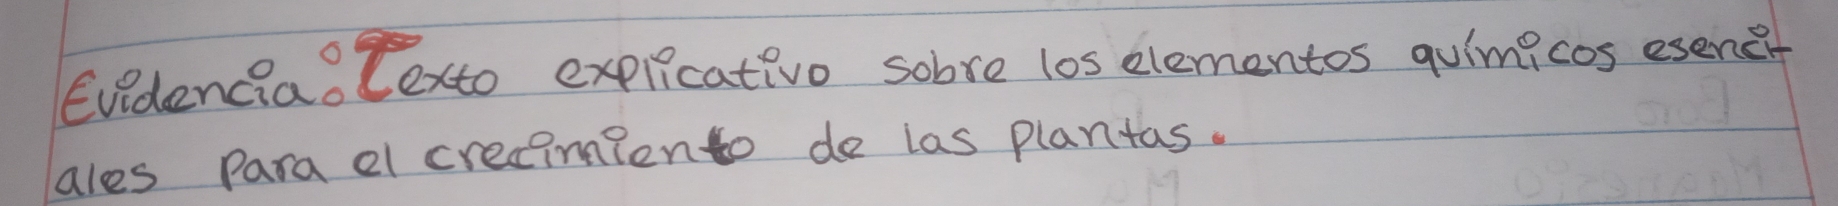 Evidencia: Texto explicativo sobre los elementos químicos esenci-
ales para el crecimiento de las plantas.